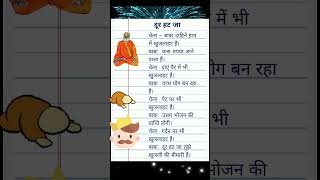 दूर हट जा
चेला - बाबा दाहिने हाथ
में खुजलाहट है।
बाबा कल रुपया आने
वाला है।
चेला दाएं पैर में भी
खुजलाहट है।
बाबा यात्रा योग बन रहा
है।
चेला पेट पर भी
खुजलाहट है।
बाबा उत्तम भोजन की
प्राप्ति होगी।
चेला गर्दन पर भी
खुजलाहट है।
बाबा दूर हट जा तुझे
खुजली की बीमारी है।
में भी
योग बन रहा
भोजन की